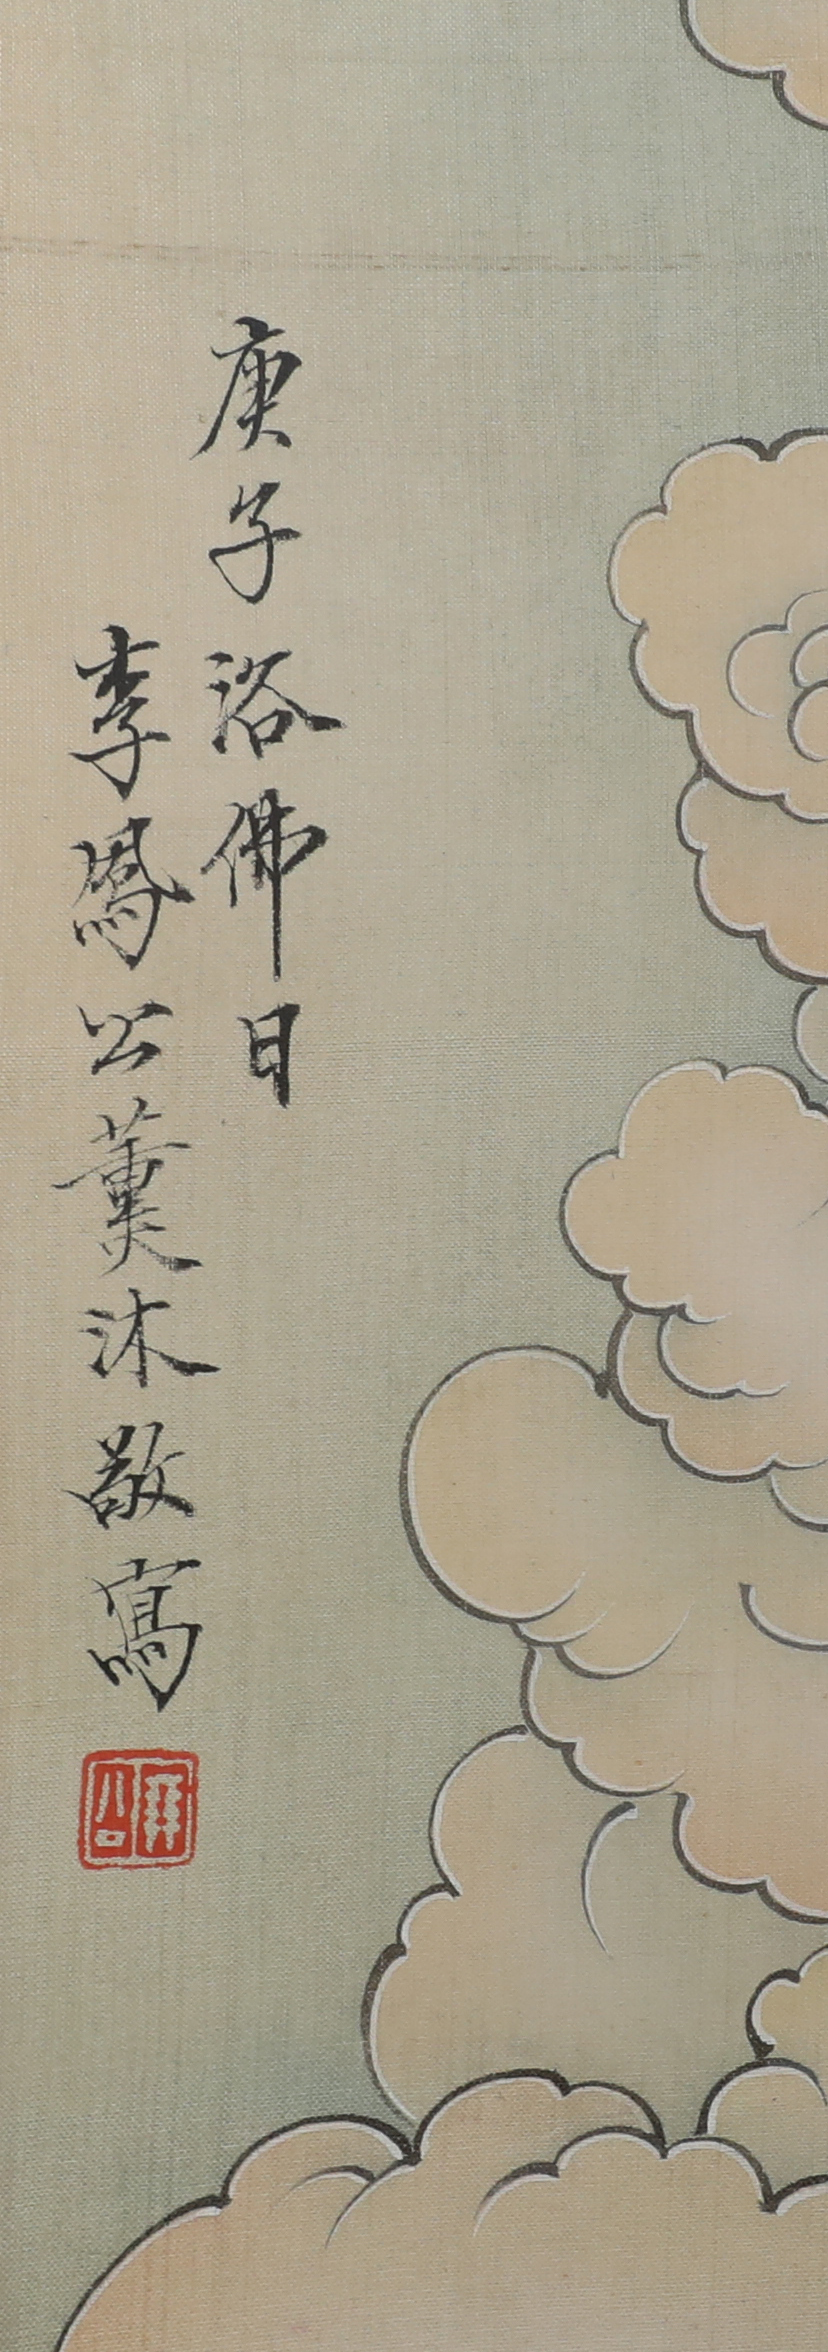 庚子浴佛日
李鳳公薰沐敬寫
鳳公